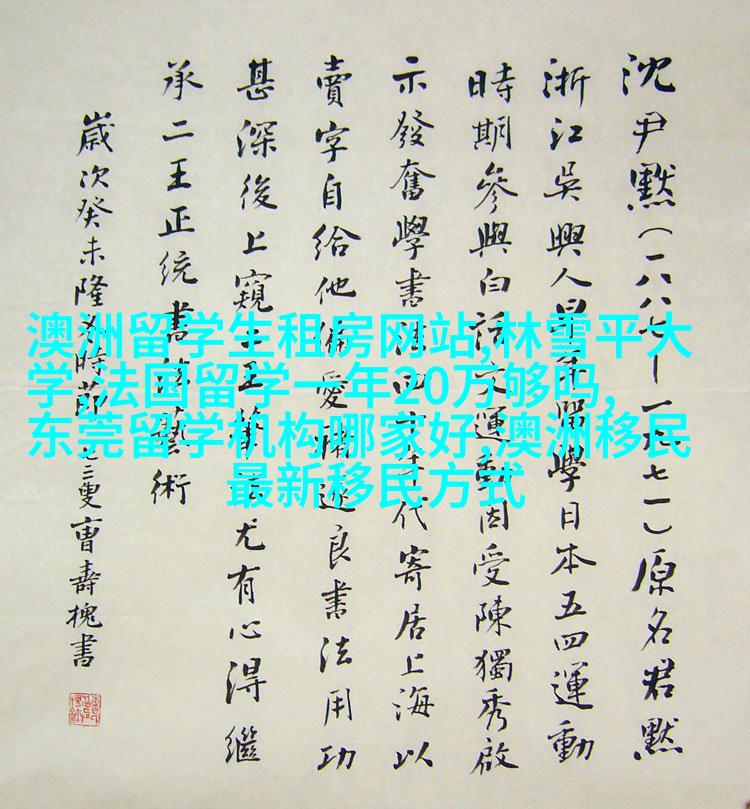 沈尹默（一八八七—一九七一）原名君默
浙江吳興人早年留學日本五四運動
時期參與白話文運動因受陳獨秀啟
示發奮學書法四十年代寄居上海以
賣字自給他偏愛褚遂良書法用功
甚深後上窺二王筆法尤有心得繼
承二王正統書法藝術
歲次癸未隆冬時節七三叟曹壽槐書
澳洲留学生租房网站,林雪平大
学,法国留学一年20万够吗,
东莞留学机构哪家好,澳洲移民
最新移民方式